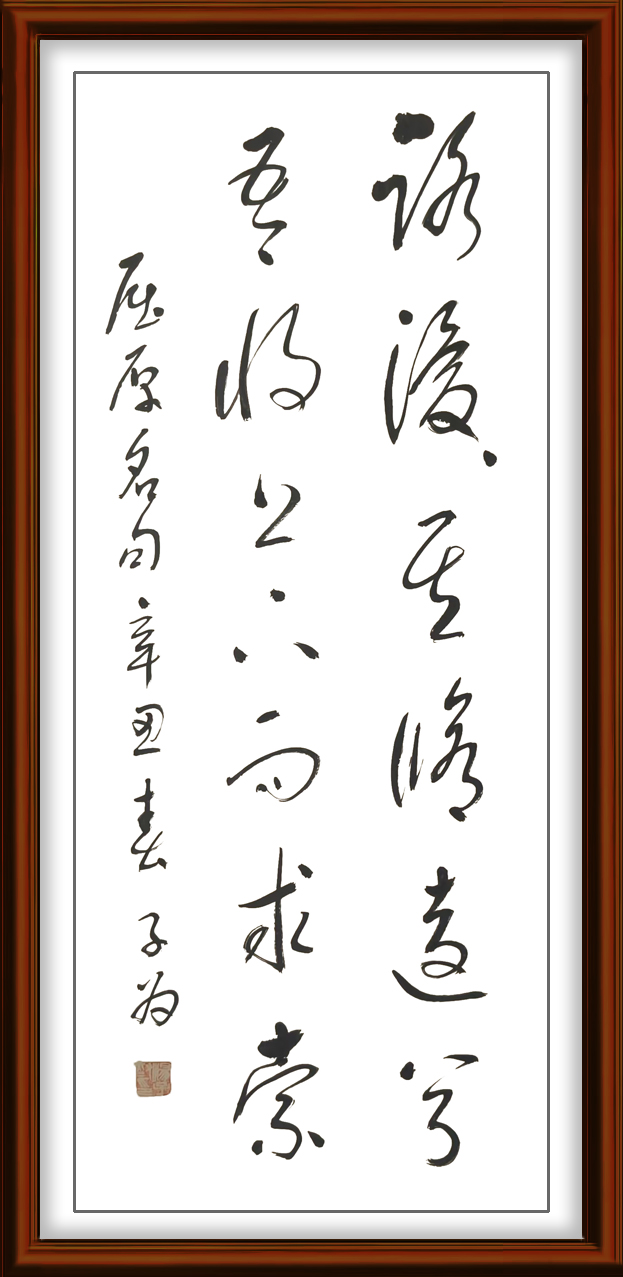 路漫漫其修远兮
吾将上下而求索
屈原名句 辛丑春 子为